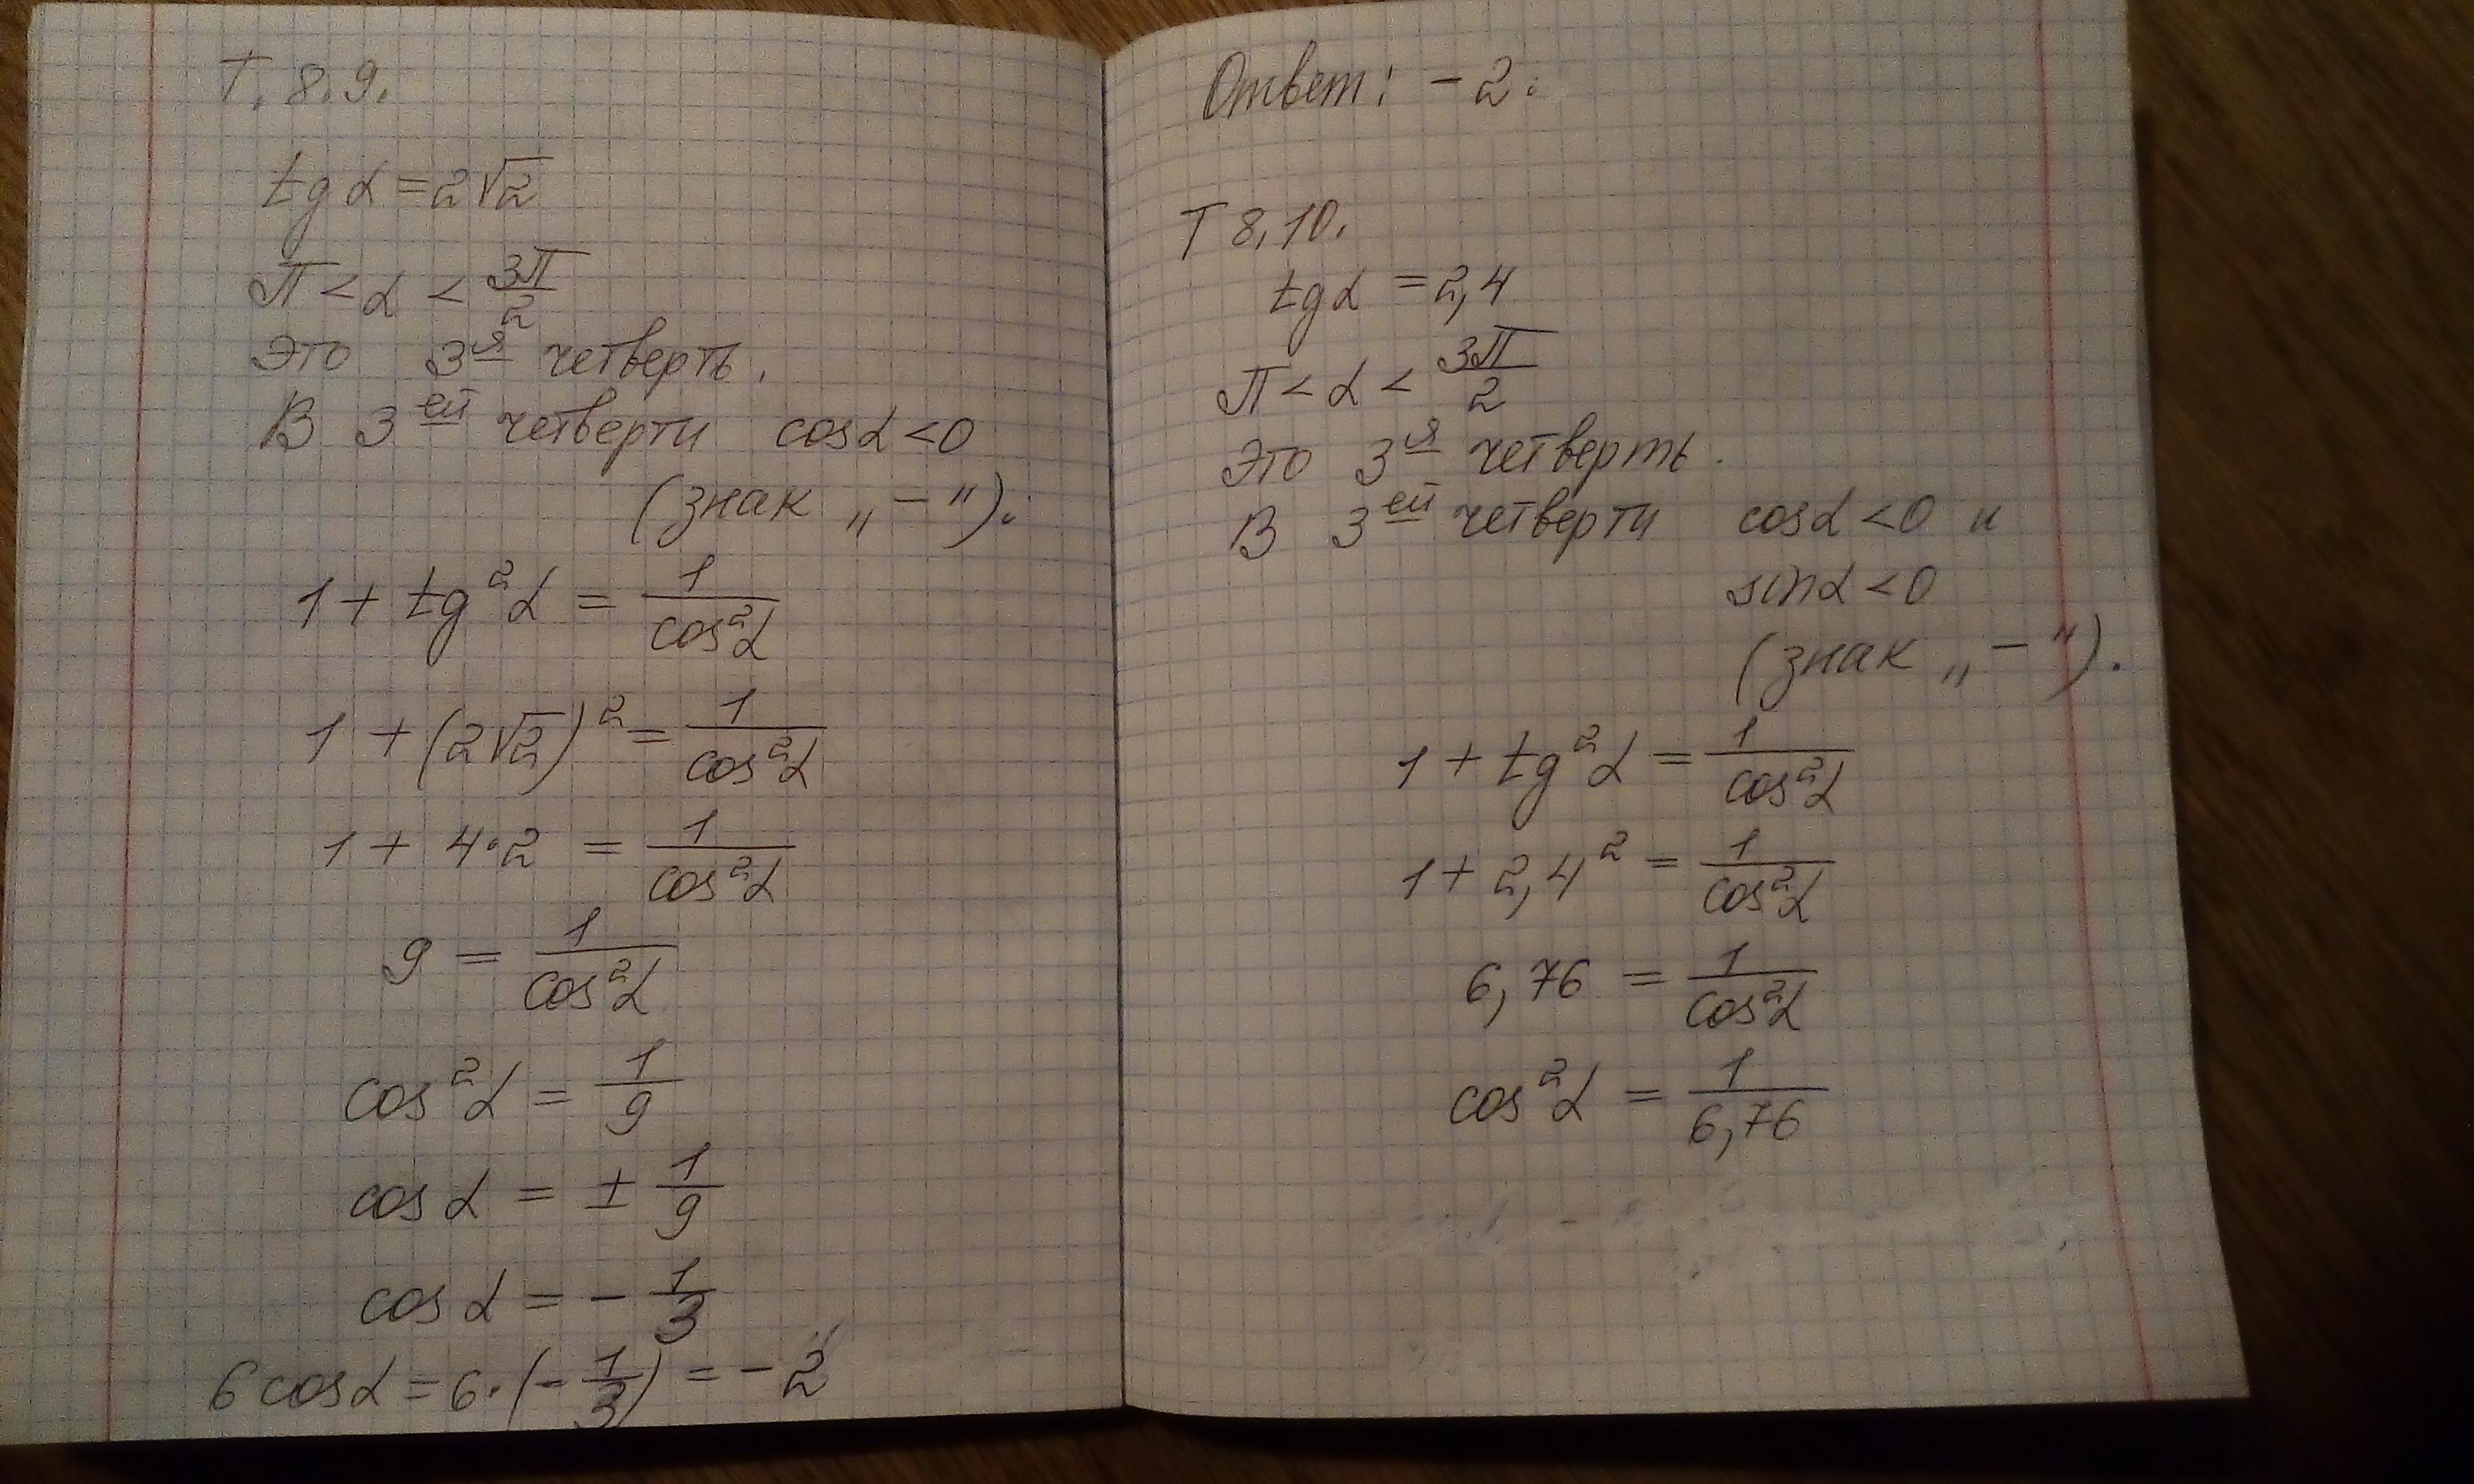 Т. 8.9.
tg α = 2√2
π < α < 3π/2
Это 3я четверть.
В 3ей четверти cos α < 0
(знак „−").
1 + tg²α = 1/cos²α
1 + (2√2)² = 1/cos²α
1 + 4·2 = 1/cos²α
9 = 1/cos²α
cos²α = 1/9
cos α = ± 1/9
cos α = − 1/3
6 cos α = 6·(− 1/3) = − 2
Ответ: − 2.
Т 8.10.
tg α = 2,4
π < α < 3π/2
Это 3я четверть.
В 3ей четверти cos α < 0 и
sin α < 0
(знак „−").
1 + tg²α = 1/cos²α
1 + 2,4² = 1/cos²α
6,76 = 1/cos²α
cos²α = 1/6,76